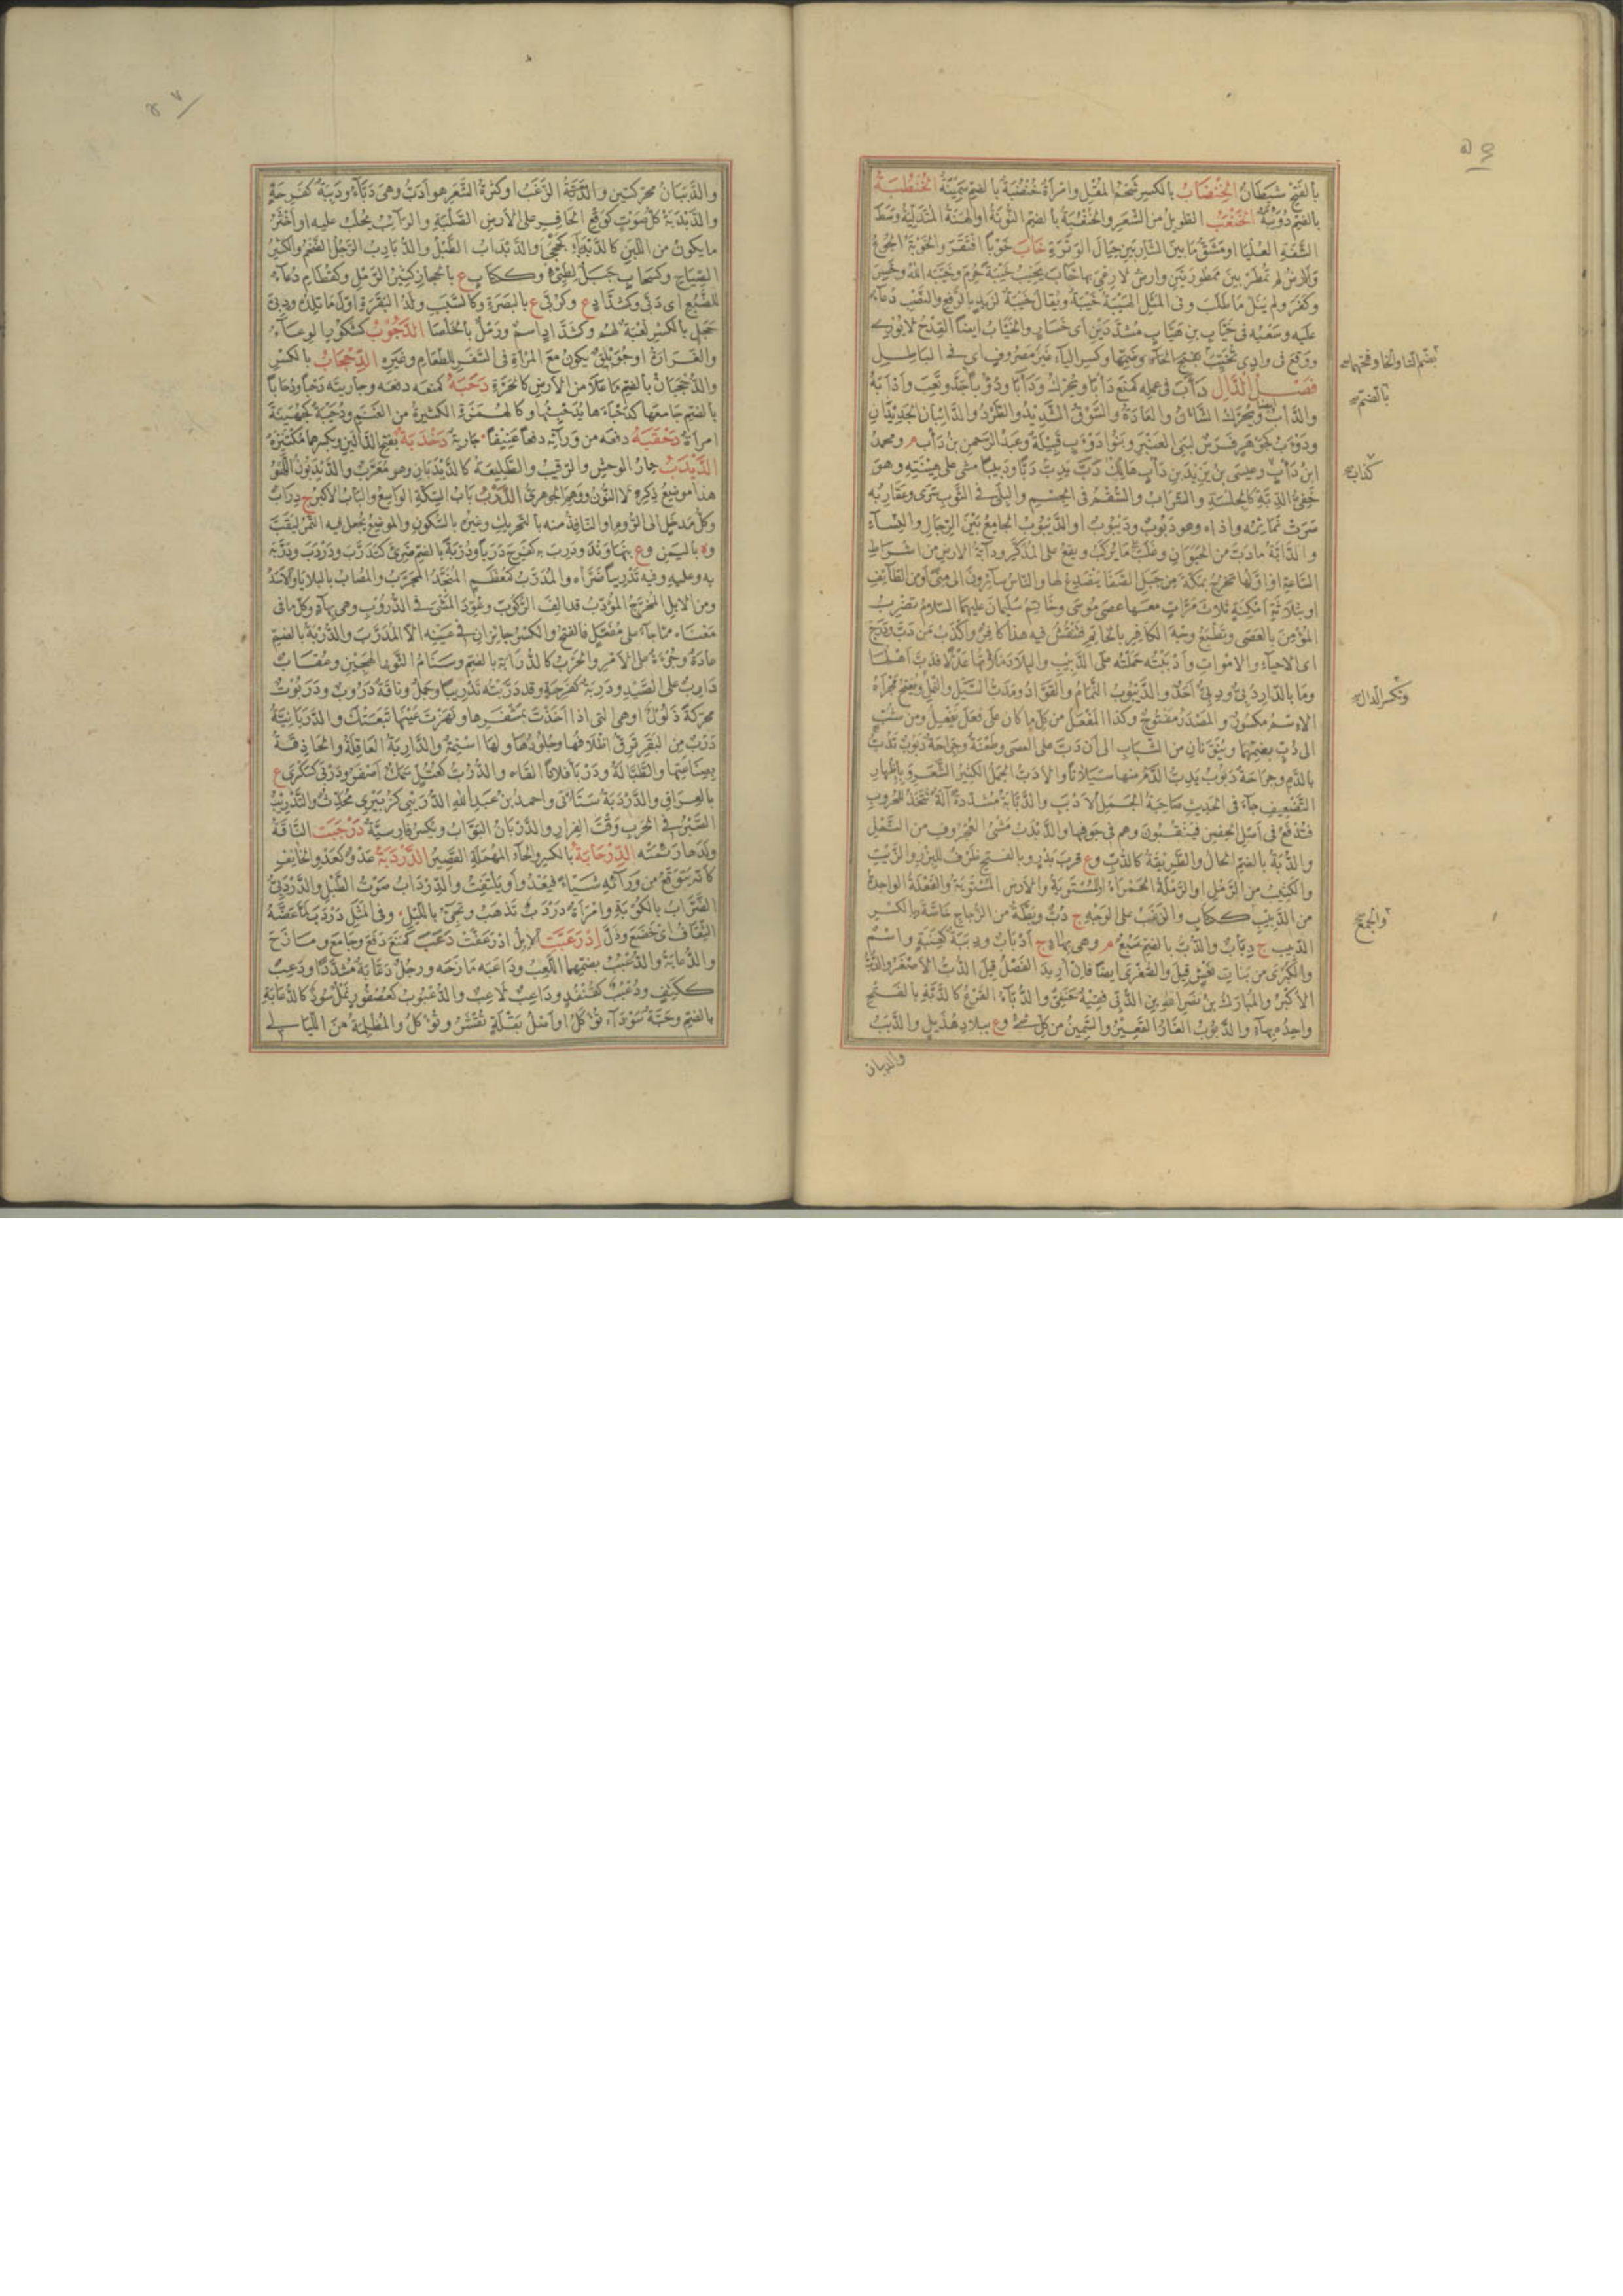 بالفتح شيطان الخنضاب بالكسر شحم المقل وامرأة خنضبة بالضم سمينة الخنظبة
بالضم دويبة الخنعب الطويل من الشعر والخنعبة بالضم النونة او الهنة المتدلية وسط
الشفة العليا او مشق ما بين الشاربين حيال الوترة خاب خوبا افتقر والخوبة الجوع
والارض لم تمطر بين ممطورتين وارض لا رعي بها خاب يخيب خيبة حرم وخيبه الله وخسر
وكفر ولم ينل ما طلب وفى المثل الهيبة خيبة ويقال خيبة لزيد بالرفع والنصب دعاء
عليه وسعيه فى خياب بن هياب مشددتين اى خسار والخياب ايضا القدح لا يورى
ووقع فى وادى تخيب بضم الخاء وفتحها وكسر الياء غير مصروف اى فى الباطل
فصل الدال دأب فى عمله كمنع دأبا ويحرك ودؤوبا بالضم جد وتعب وادأبه
والدأب ويحرك الشان والعادة والسوق الشديد والطرد والدائبان الجديدان
ودوأب كجوهر فرس لبنى العنبر وبنو دوأب قبيلة وعبد الرحمن بن دأب م ومحمد
ابن دأب وعيسى بن يزيد بن دأب هالك دب يدب دبا ودبيبا مشى على هينته وهو
خفى الدبة كالجلسة والشراب والسقم فى الجسم والبلى فى الثوب سرى وعقاربه
سرت نمائمه واذاه وهو دبوب وديبوب او الديبوب الجامع بين الرجال والنساء
والدابة ما دب من الحيوان وغلب على ما يركب ويقع على المذكر ودابة الارض من اشراط
الساعة او اولها تخرج بمكة من جبل الصفا ينصدع لها والناس سائرون الى منى او من الطائف
او بثلاثة امكنة ثلاث مرات معها عصى موسى وخاتم سليمان عليهما السلام تضرب
المؤمن بالعصى وتطبع وجه الكافر بالخاتم فينقش فيه هذا كافر واكذب من دب ودرج
اى الاحياء والاموات وادببته حملته على الدبيب والبلاد ملأتها عدلا فدب اهلها
وما بالدار دبى ودبى احد والديبوب النمام والقواد ومدب السيل والنمل ويفتح مجراه
الاسم مكسور والمصدر مفتوح وكذا المفعل من كل ما كان على فعل يفعل ومن شب
الى دب بضمهما وينونان من الشباب الى ان دب على العصى وطعنة وجراحة دبوب تدب
بالدم وجراحة دبوب يدب الدم منها سيلانا والادب الجمل الكثير الشعر وباظهار
التضعيف جاء فى الحديث صاحبة الجمل الادبب والدبابة مشددة آلة تتخذ للحروب
فتدفع فى اصل الحصن فينقبون وهم فى جوفها والدبدب مشى العجروف من النمل
والدبة بالضم الحال والطريقة كالدب وع قرب بدر وبالفتح ظرف للبزر والزيت
والكثيب من الرمل او الرملة الحمراء او المستوية والارض المستوية والفعلة الواحدة
من الدبيب ج ككتاب والزغب على الوجه ج دب وبطة من الزجاج خاصة وبالكسر
الدبيب ج دباب والدب بالضم سبع م وهى بهاء ج ادباب ودببة كعنبة واسم
والكبرى من بنات نعش قيل والصغرى ايضا فان اريد الفصل قيل الدب الاصغر والدب
الاكبر والمبارك بن نصر الله بن الدبى فقيه حنفى والدباء القرع كالدبة بالفتح
واحده بهاء والدبوب الغار القعير والسمين من كل شئ وع ببلاد هذيل والدبب
والدببان
بضم التاء والخاء وفتحها صح
بالضم صح
كذابة
وتكسر الدال صح
والجمع
والدببان محركتين والدبة الزغب او كثرة الشعر هو ادب وهى دباء ودببة كفرحة
والدبدبة كل صوت كوقع الحافر على الارض الصلبة والرائب يحلب عليه او اخثر
ما يكون من اللبن كالدبدبى كجحجبى والدبداب الطبل والدبادب الرجل الضخم والكثير
الصياح وكسحاب جبل لطيئ وككتاب ع بالحجاز كثير الرمل وكقطام دعاء
للضبع اى دبى وكشداد ع وكربى ع بالبصرة وكالسبب ولد البقرة اول ما تلده ودبى
حجل بالكسر لعبة لهم وكشداد اسم ورمل بالخلصا الدجوب كشكور الوعاء
والغرارة او جويلق يكون مع المرأة فى السفر للطعام وغيره الدحجاب بالكسر
والدحجبان بالضم ما علا من الارض كالحزة دحبه كمنعه دفعه وجاريته دحبا ودحابا
بالضم جامعها كدحباءها يدحبيها وكالهمزة الكثيرة من الغنم ودحيبة كجهينة
امرأة دحقبه دفعه من ورائه دفعا عنيفا جارية دخدبة بفتح الدالين وبكسرهما مكتنزة
الديدب حمار الوحش والرقيب والطليعة كالديدبان وهو معرب والديدبون اللهو
هذا موضع ذكره لا النون ووهم الجوهرى الدرب باب السكة الواسع والباب الاكبر ج دراب
وكل مدخل الى الروم او النافذ منه بالتحريك وغيره بالسكون والموضع يجعل فيه التمر ليقب
وة باليمن وع بنهاوند ودرب به كفرح دربا ودربة بالضم ضرى كتدرب ودردب ودربه
به وعليه وفيه تدريبا ضراه والمدرب كمعظم المنجد المجرب والمصاب بالبلايا والاسد
ومن الابل المخرج المؤدب قد الف الركوب وعود المشى فى الدروب وهى بهاء وكل ما فى
معناه مما جاء على مفعل فالفتح والكسر جائزان فى عينه الا المدرب والدربة بالضم
عادة وجرءة على الامر والحرب كالدرابة بالضم وسنام الثور الهجين وعقاب
دارب على الصيد ودربة كفرحة وقد دربته تدريبا وجمل وناقة دروب ودربوت
محركة ذلول او هى التى اذا اخذت بمشفرها ونهزت عينها تبعتك والدربانية
درب من البقر ترق اظلافها وجلودها ولها اسنمة والداربة العاقلة والحاذقة
بصناعتها والطبالة ودربا فلانا القاه والدرب كعتل سمك اصفر ودربى كسكرى ع
بالعراق والدردبة ستأتى واحمد بن عبد الله الدربيى كزبيرى محدث والتدريب
الصبر فى الحرب وقت الفرار والدربان البواب وتكسر فارسية درجبت الناقة
ولدها رئمته الدرحابة بالكسر والحاء المهملة القصير الدردبة عدو كعدو الخائف
كانه يتوقع من ورائه شيئا فيعدو ويلتفت والدرداب صوت الطبل والدردبى
الضراب بالكوبة وامرأة دردب تذهب وتجئ بالليل وفى المثل دردب لما عضه
الثقاف اى خضع وذل ادرعبت الابل ادرعفت دعب كمنع دفع وجامع ومازح
والدعابة والدعبب بضمهما اللعب وداعبه مازحه ورجل دعابة مشددا ودعب
ككتف ودعبب كقنفذ وداعب لاعب والدعبوب كعصفور نمل سود كالدعابة
بالضم وحبة سوداء تؤكل او اصل بقلة تقشر وتؤكل والمظلمة من الليالى